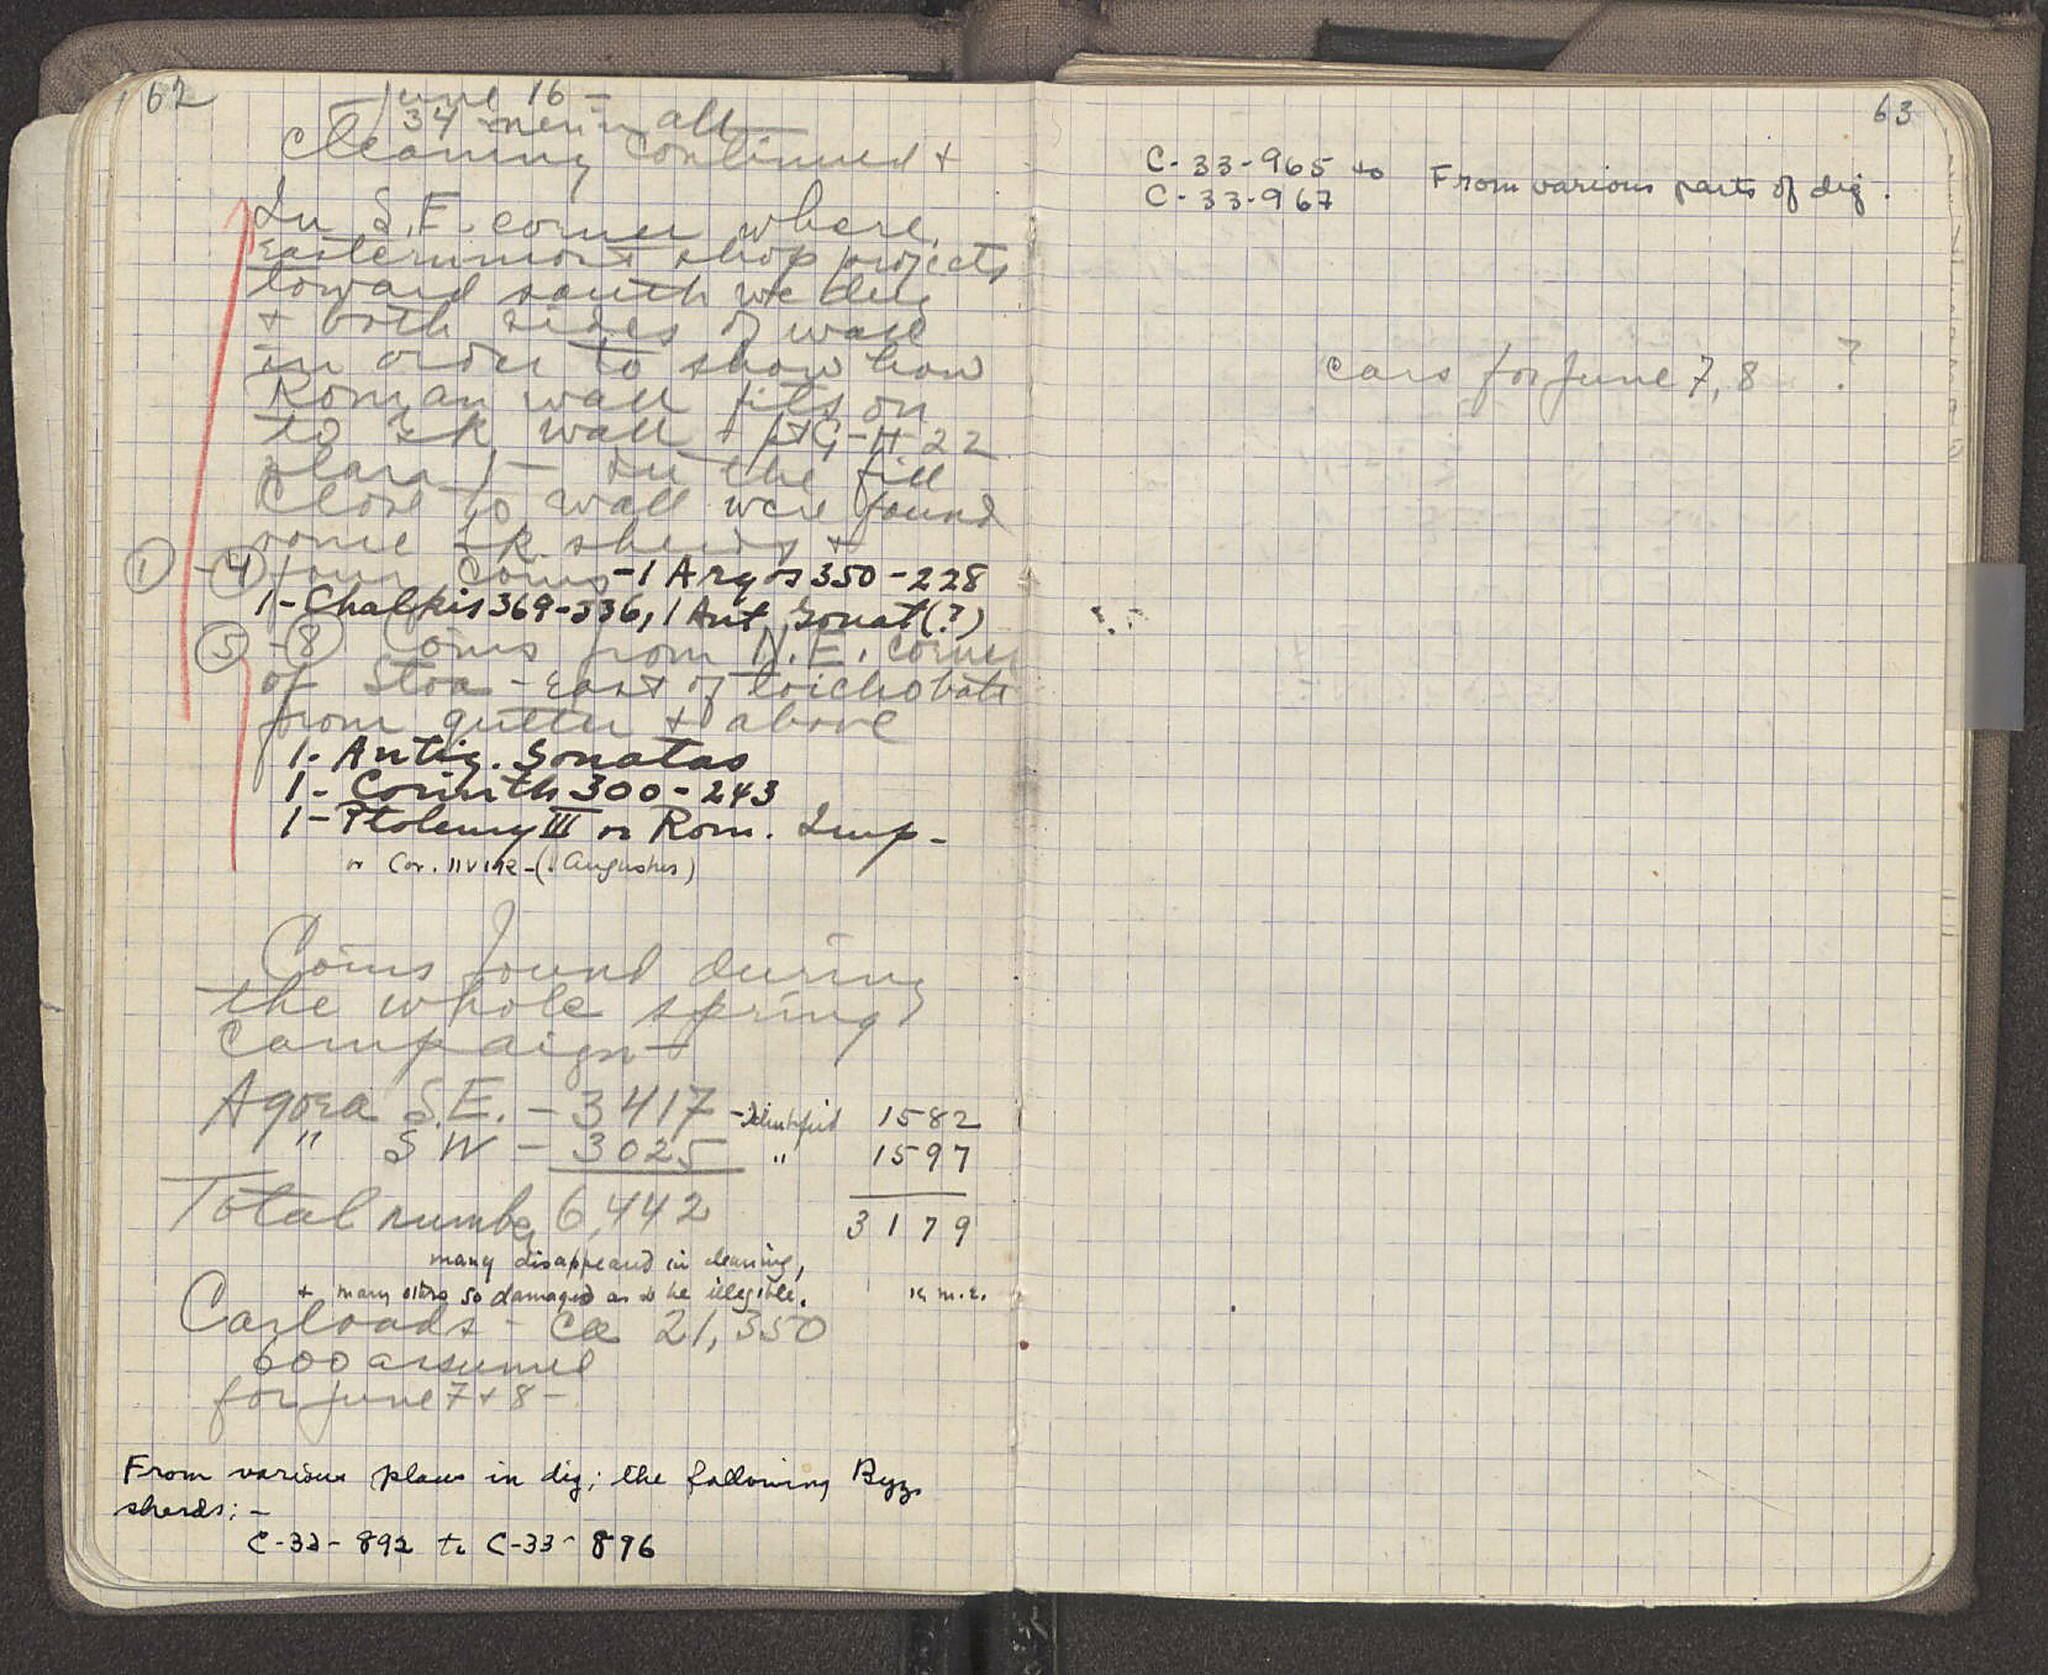 62
June 16 -
34 men in all
Cleaning continued +
In S.E. corner where
easternmost shop projects
toward south we dug
+ both sides of wall
in order to show how
Roman wall fits on
to Gk wall + G-H 22
plan - In the fill
close to wall were found
some Gk. sherds +
① - ④ four coins - 1 Argos 350-228
1-Chalkis 369-336, 1 Ant Gonat (?)
⑤ - ⑧ Coins from N.E. corner
of Stoa - east of toichobate
from gutter + above
1. Antig. Gonatas
1 - Corinth 300-243
1 - Ptolemy III or Rom. Imp -
or Cor. IIVIR - (? Augustus)
Coins found during
the whole spring
campaign -
Agora S.E. - 3417 - Identified 1582
" S W - 3025 " 1597
Total number 6,442 3179
many disappeared in cleaning,
+ many others so damaged as to be illegible. K.M.E.
Carloads - ca 21,350
600 assumed
for June 7 + 8 -
From various places in dig; the following Byz.
sherds: -
C-33-892 to C-33-896
63
C-33-965 to From various parts of dig.
C-33-967
cars for June 7, 8 ?